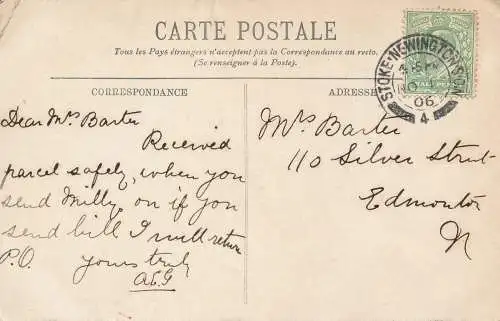 CARTE POSTALE
Tous les Pays étrangers n'acceptent pas la Correspondance au recto.
(Se renseigner à la Poste).
CORRESPONDANCE
Dear Mrs Barter
Received
parcel safely, when you
send Milly. on if you
send bill I will return
P.O. yours truly
A.E.G
ADRESSE
Mrs Barter
110 Silver Street
Edmonton
N
STOKE-NEWINGTON
06
4